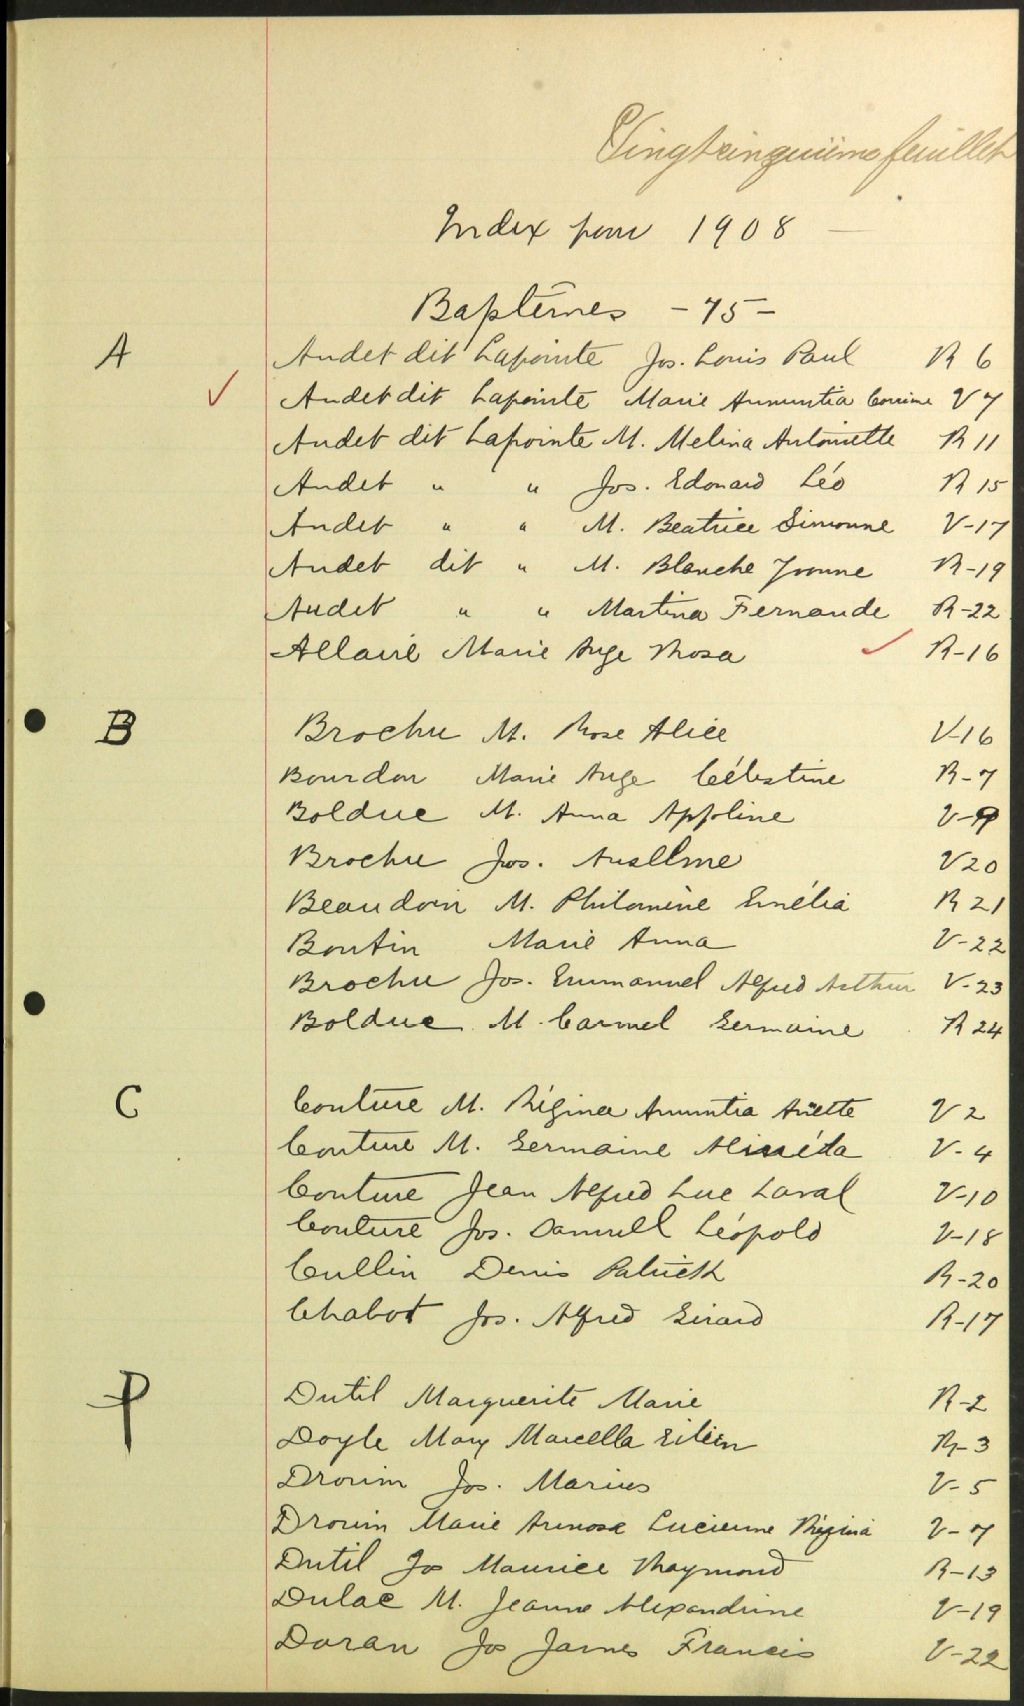 Vingtcinquième feuillet
Index pour 1908 —
Baptêmes - 75 -
A
Audet dit Lapointe Jos. Louis Paul R 6
✓ Audet dit Lapointe Marie Annuntia Corinne V 7
Audet dit Lapointe M. Melina Antoinette R 11
Audet " " Jos. Edouard Léo R 15
Audet " " M. Beatrice Simonne V-17
Audet dit " M. Blanche Yvonne R-19
Audet " " Martina Fernande R-22
Allaire Marie Ange Rosa ✓ R-16
B
Brochu M. Rose Alice V-16
Bourdon Marie Ange Célestine R-7
Bolduc M. Anna Appoline V-9
Brochu Jos. Ansellme V20
Beaudoin M. Philomène Emélia R 21
Boutin Marie Anna V-22
Brochu Jos. Emmanuel Alfred Arthur V-23
Bolduc M. Carmel Germaine R 24
C
Couture M. Régina Annuntia Arlette V 2
Couture M. Germaine Alméda V-4
Couture Jean Alfred Luc Laval V-10
Couture Jos. Samuell Léopold V-18
Cullin Denis Patrick R-20
Chabot Jos. Alfred Girard R-17
Dutil Marguerite Marie R-2
Doyle Mary Marcella Eileen R-3
Drouin Jos. Marius V-5
Drouin Marie Lucienne Régina V-7
Dutil Jos Maurice Raymond R-13
Dulac M. Jeanne Alexandrine V-19
Doran Jos James Francis V-22